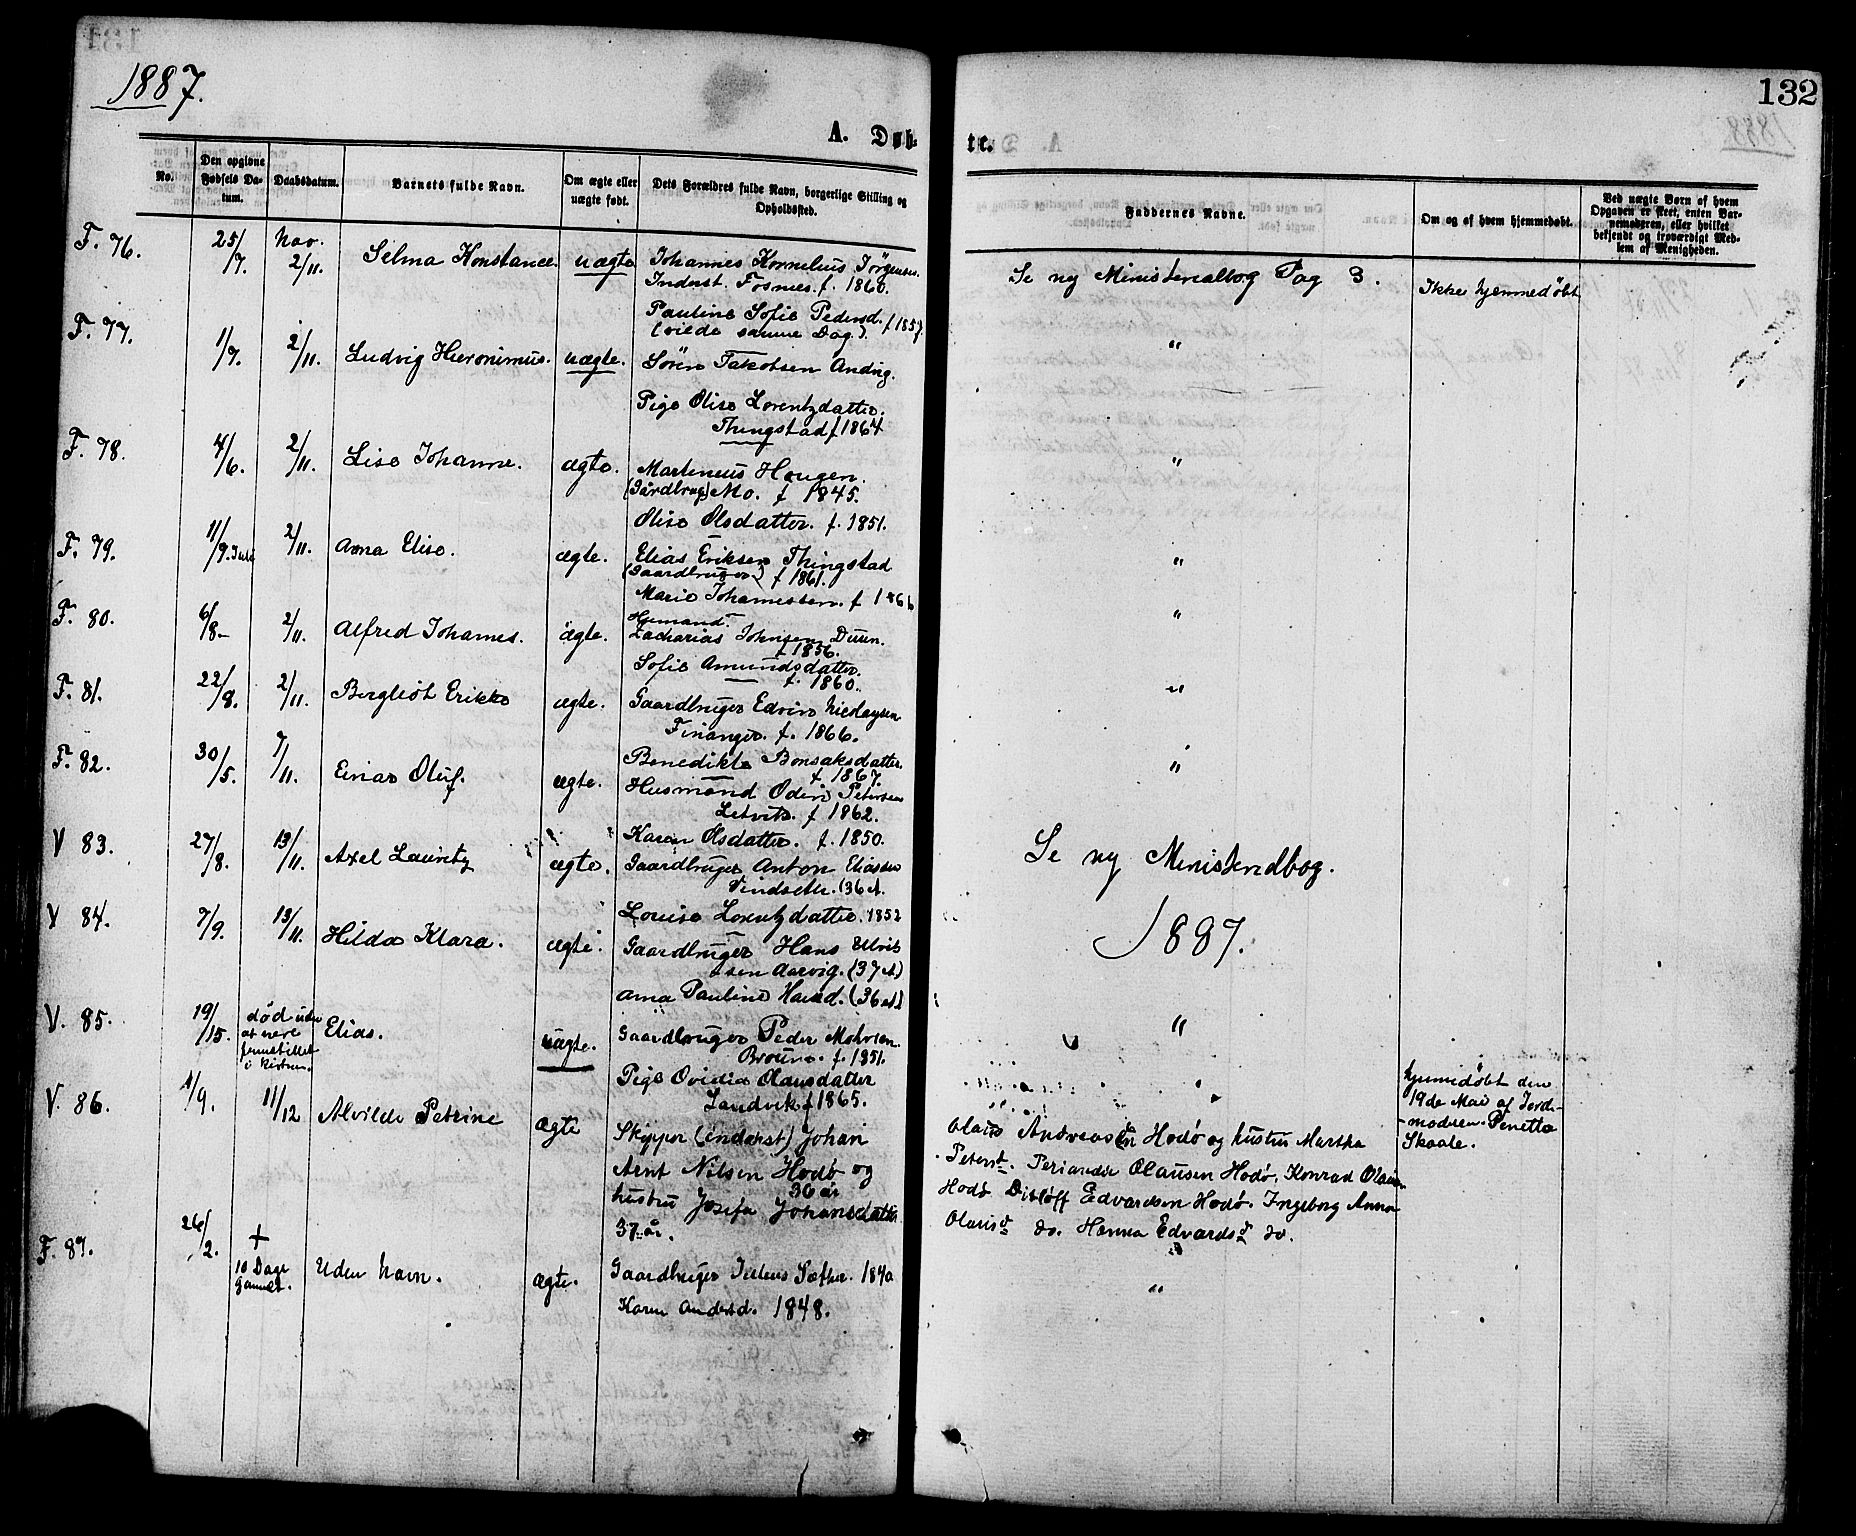 1887.
132
A. Døb-
te.
No.
Den opgivne Fødsels Da-tum.
Daabsdatum.
Barnets fulde Navn.
Om ægte eller uægte født.
Dets Forældres fulde Navn, borgerlige Stilling og Opholdssted.
Faddernes Navne.
Om og af hvem hjemmedøbt.
Ved uægte Børn af hvem Opgaven er skeet, enten Bar-nemoderen, eller hvilket bekjendt og troværdigt Med-lem af Menigheden.
F. 76. 25/7. Nov. 2/11. Selma Konstance uægte Johannes Kornelius Jørgensen.
Inderst. Fosnes. f. 1860.
Pauline Sofie Pedersd. f 1857.
(viede samme Dag).
Se ny Ministerialbog Pag 3. Ikke hjemmedøbt
F. 77. 1/7. 2/11. Ludvig Hieronimus. uægte. Sören Jakobsen Andvig.
Pige Olise Lorentzdatter.
Thingstad f 1864
"
F. 78. 4/6. 2/11. Lise Johanne. ægte. Martinus Hougen.
(Gårdbrug) Mo. f 1845.
Olise Olsdatter. f. 1851.
"
F. 79. 11/9. 2/11. Anna Elise. ægte. Elias Eriksen Thingstad
(Gaardbruger) f 1861.
Marie Johannessen. f 1866
"
F. 80. 6/8- 2/11. Alfred Johannes. ægte. Husmand.
Zacharias Johnsen Duun.
f 1856.
Sofie Amundsdatter.
f. 1860.
"
F. 81. 22/8. 2/11. Bergliot Erikke ægte. Gaardbruger Edvin Nicolaysen
Finanger. f. 1866.
Benedikte Bonsaksdatter.
f 1867.
"
F. 82. 30/5. 7/11. Einar Oluf. ægte. Husmand Odin Petersen
Letvik. f 1862.
Karen Olsdatter. f. 1850.
"
V 83. 27/8. 13/11. Axel Lauritz ægte. Gaardbruger Anton Eliassen
Vindseth. (36 A.
Louise Lorentzdatter. 1852
Se ny Ministerialbog.
V 84. 7/9. 13/11. Hilda Klara. ægte. Gaardbruger Hans Elvik
sen Aarvig. (37 A)
Anna Pauline Hansd. (36 A.)
1887.
V. 85. 19/15. død uden
at være
fremstillet
i kirken.
Elias. uægte. Gaardbruger Peder
Broune. f. 1851.
Pige Ovidia Olausdatter
Sandvik f 1865.
"
hjemmedøbt den
19de Mai af Jord-
-moderen Penetta
Skaale.
V. 86. 1/9. 11/12 Alvilde Petrine ægte Skipper (inderst) Johan
Arnt Nilsen Hodø og
36 år
hustru Josefa Johansdatter
37 år.
Olaus Andreassen Hodø og hustru Martha
Petersd. Periander Olausen Hodø, Konrad Olausen
Hodø Ditløff Edvardsen Hodø. Ingeborg Anna
Olausd do. Hanna Edvardsd do.
F. 87. 26/2. +
10 Dage
Gammel.
Uden Navn. ægte. Gaardbruger Julius Sæther. 1840
Karen Andersd. 1848.
"